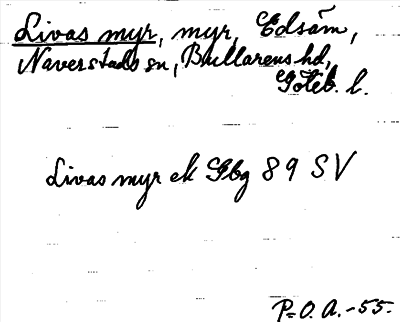 Livas myr, myr, Edsäm,
Naverstads sn, Bullarens hd,
Göteb. l.
Livas myr ek Gbg 89 SV
P-O.A.-55.